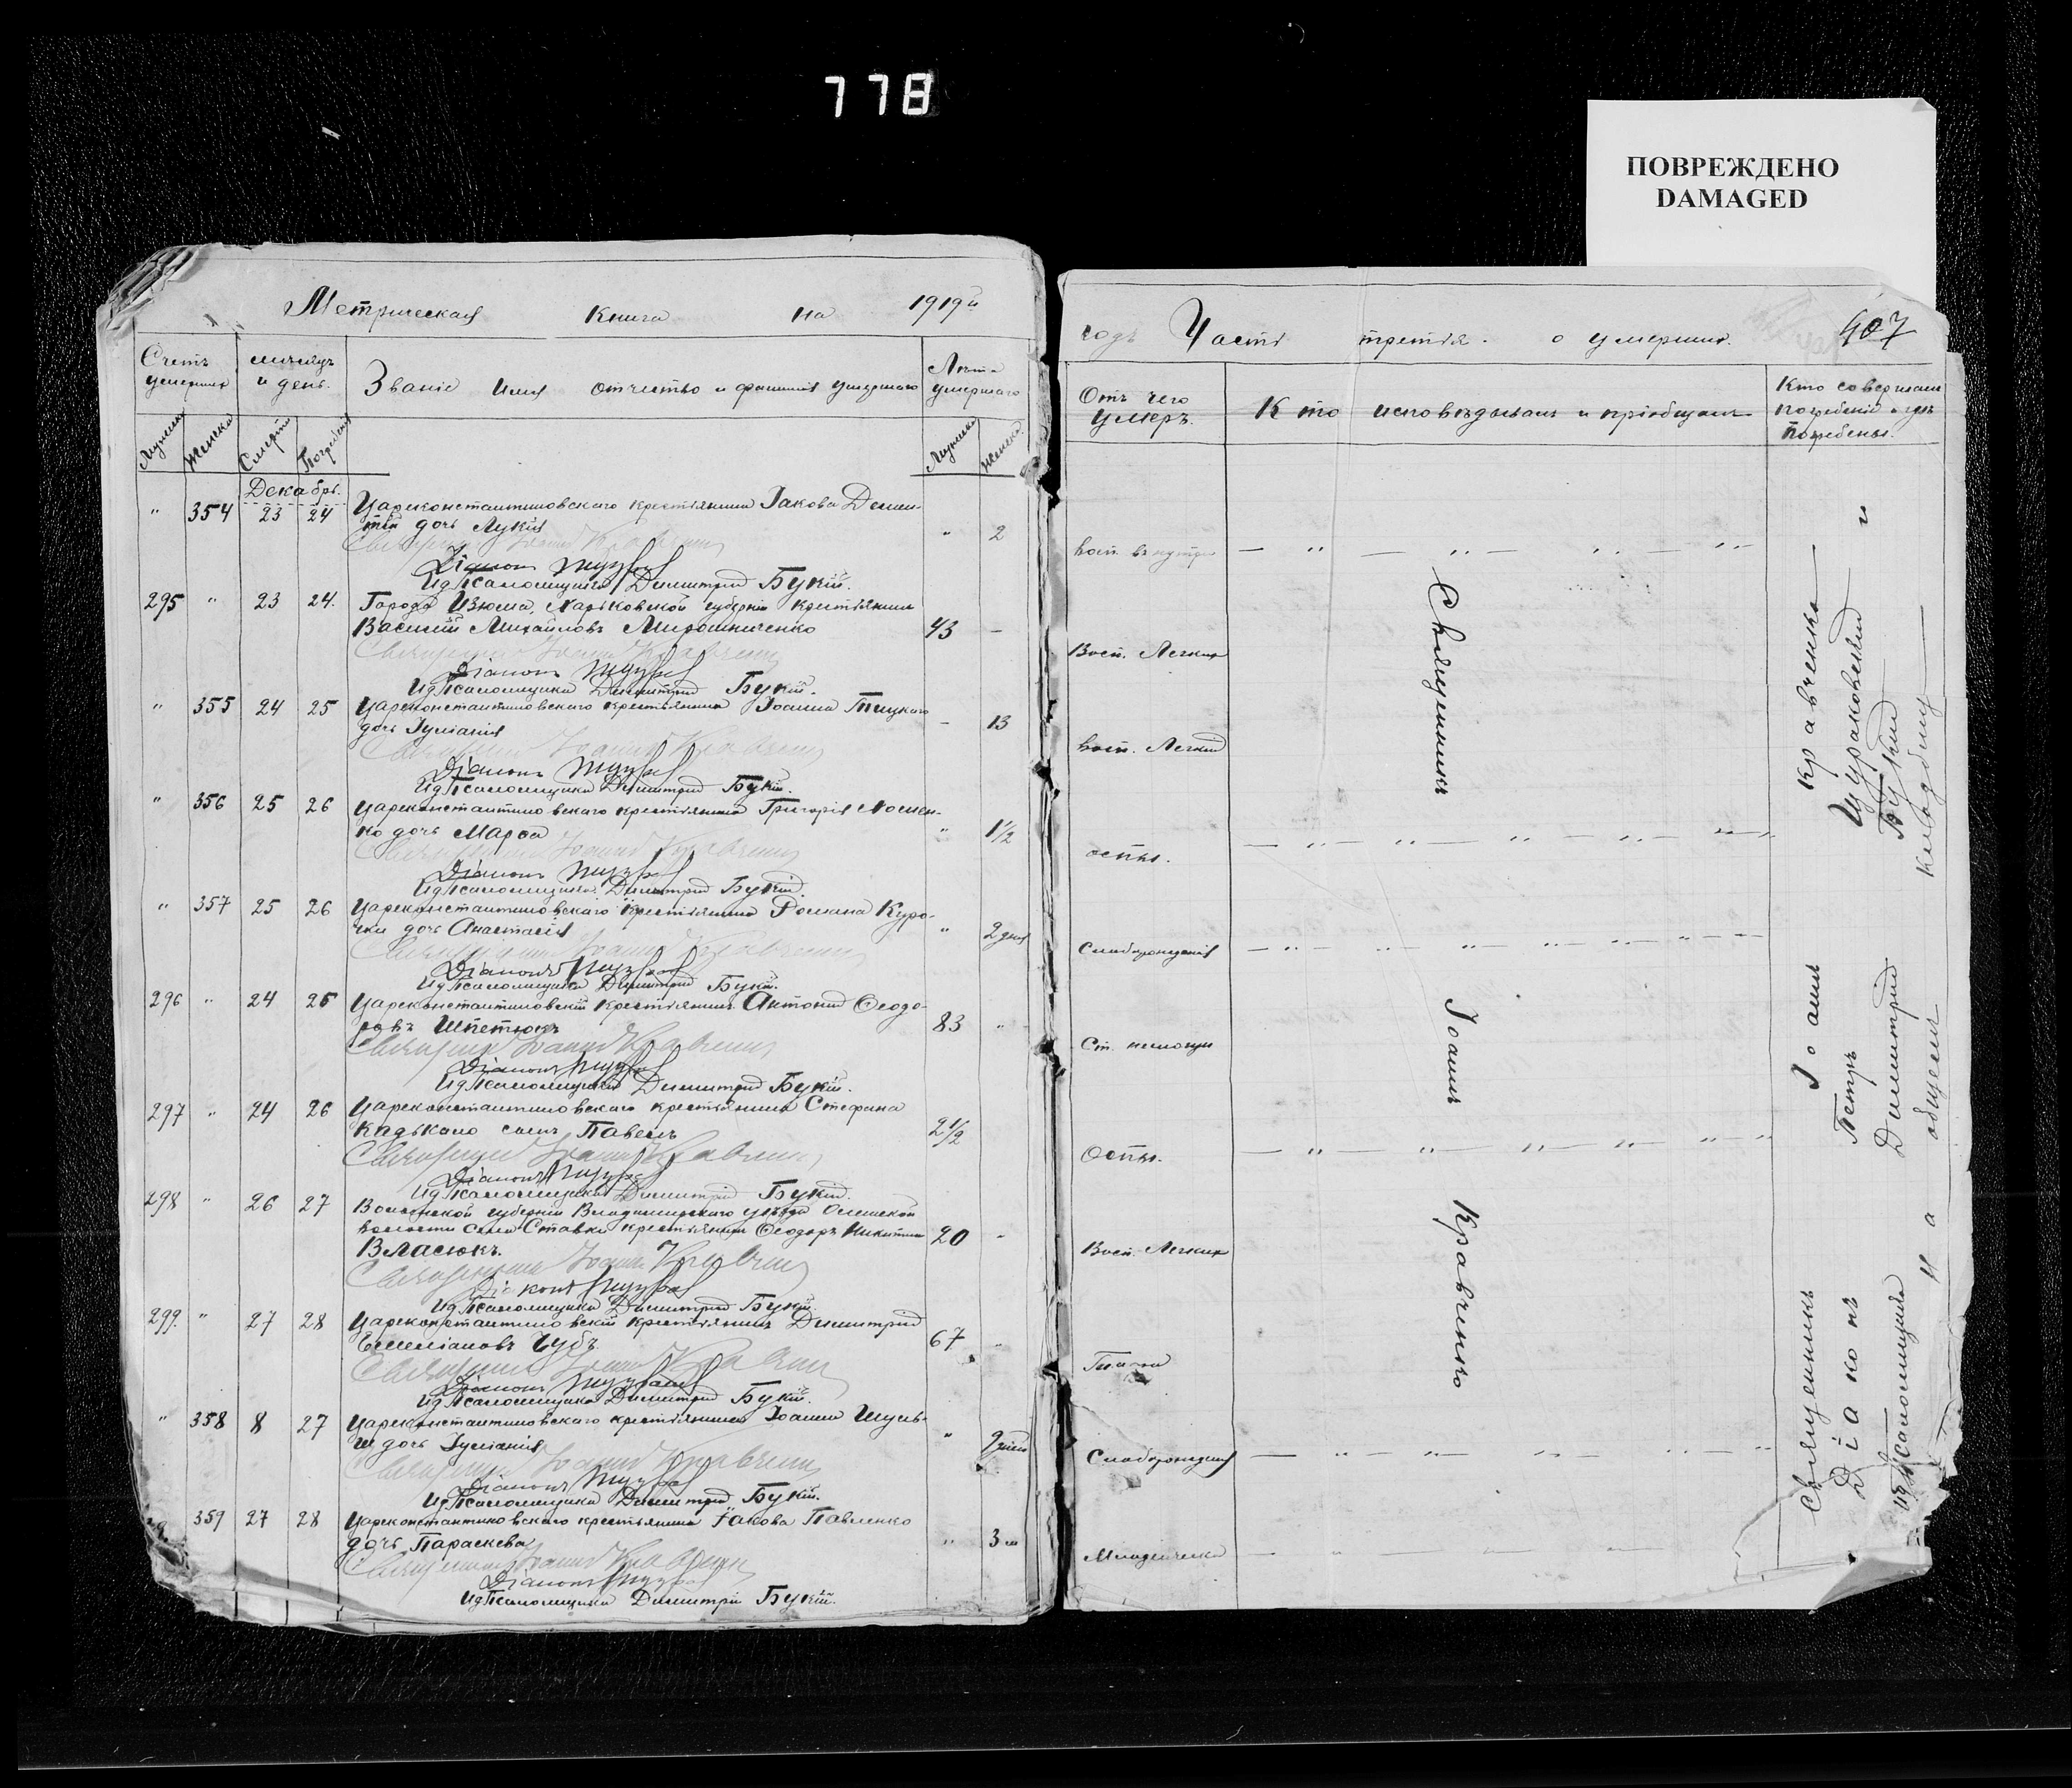 778
ПОВРЕЖДЕНО
DAMAGED
Метрическая книга на 1919й
Счетъ умершихъ
мѣсяцъ и день.
Званіе имя отчество и фамилія умершаго
Лѣта умершаго
Мужска Женска Смерти Погребенія
Мужска Женска
Декабрь.
" 354 23 24 Цареконстантиновскаго крестьянина Іакова
дочь Лукія " 2
Священникъ Іоаннъ Кравченко
Діаконъ
Ид Псаломщика Димитрій Букій.
295 " 23 24. Города Изюма, Харьковской губерніи крестьянинъ
Василій Михайловъ Мирошниченко 43 —
Священникъ Іоаннъ Кравченко
Діаконъ
Ид Псаломщика Димитрій Букій.
" 355 24 25 Цареконстантиновскаго крестьянина Іоанна
дочь Іуліанія — 13
Священникъ Іоаннъ Кравченко
Діаконъ
Ид Псаломщика Димитрій Букій.
" 356 25 26 Цареконстантиновскаго крестьянина Григорія
ко дочь Марѳа " 1½
Священникъ Іоаннъ Кравченко
Діаконъ
Ид Псаломщика Димитрій Букій.
" 357 25 26 Цареконстантиновскаго крестьянина Романа Куро-
чки дочь Анастасія " 2 дня
Священникъ Іоаннъ Кравченко
Діаконъ
Ид Псаломщика Димитрій Букій.
296 " 24 25 Цареконстантиновскій крестьянинъ Антоній Ѳеодо-
ровъ 83 "
Священникъ Іоаннъ Кравченко
Діаконъ
Ид Псаломщика Димитрій Букій.
297 " 24 26 Цареконстантиновскаго крестьянина Стефана
сынъ Павелъ 2½
Священникъ Іоаннъ Кравченко
Діаконъ
Ид Псаломщика Димитрій Букій.
298 " 26 27 Волынской губерніи Владимірскаго уѣзда
волости села Ставки крестьянинъ Ѳеодоръ Никитинъ 20 "
Власюкъ.
Священникъ Іоаннъ Кравченко
Діаконъ
Ид Псаломщика Димитрій Букій.
299. " 27 28 Цареконстантиновскій крестьянинъ Димитрій
Емеліановъ Чубъ 67 "
Священникъ Іоаннъ Кравченко
Діаконъ
Ид Псаломщика Димитрій Букій.
" 358 8 27 Цареконстантиновскаго крестьянина Іоанна Шуль-
ги дочь Іуліанія "
Священникъ Іоаннъ Кравченко
Діаконъ
Ид Псаломщика Димитрій Букій.
359 27 28 Цареконстантиновскаго крестьянина Іакова Павленко
дочь Параскева " 3 м
Священникъ Іоаннъ Кравченко
Діаконъ
Ид Псаломщика Димитрій Букій.
годъ Часть третія. о умершихъ. 407
Отъ чего умеръ.
Кто исповѣдывалъ и пріобщалъ
Кто совершалъ погребеніе и гдѣ погребены.
Восп. внутри
Восп. Легкихъ
Восп. Легкихъ
Оспы.
Слаборожденія
Ст. немощи
Оспы.
Восп. Легкихъ
Слаборожденія
Священникъ Іоаннъ Кравченко
Священникъ Іоаннъ Кравченко — и
Діаконъ Петръ
ид Псаломщика Димитрій Букій
На общемъ кладбищѣ